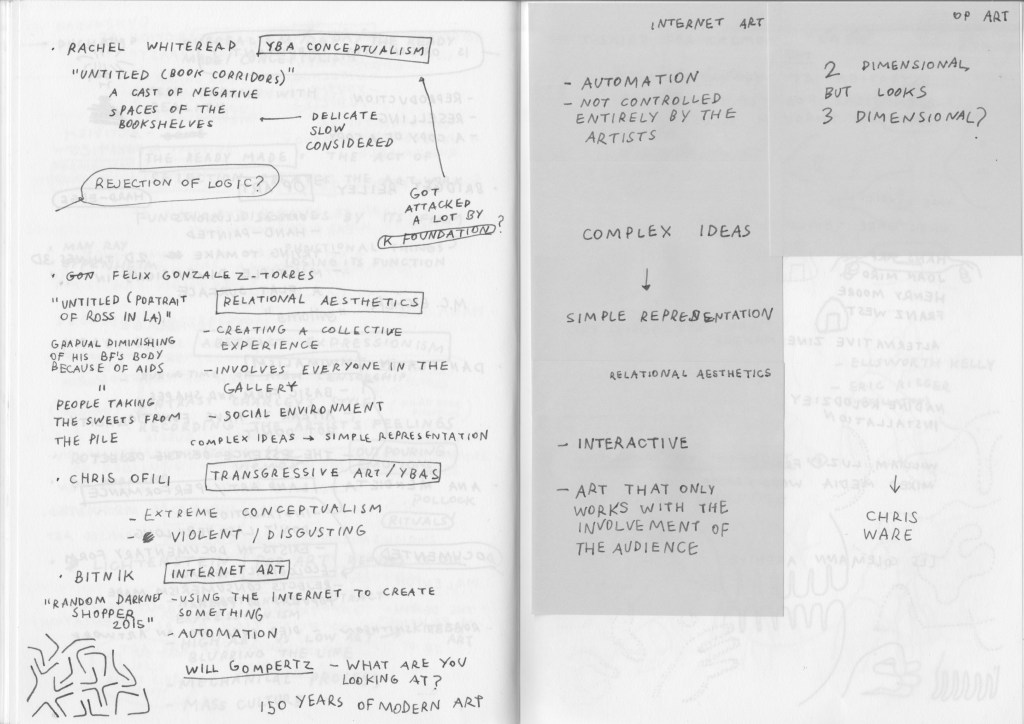 · RACHEL WHITEREAD YBA CONCEPTUALISM
"UNTITLED (BOOK CORRIDORS)"
A CAST OF NEGATIVE
SPACES OF THE
BOOKSHELVES
DELICATE
SLOW
CONSIDERED
REJECTION OF LOGIC?
GOT
ATTACKED
A LOT BY
K FOUNDATION?
· GON FELIX GONZALEZ-TORRES
"UNTITLED (PORTRAIT
OF ROSS IN LA)"
RELATIONAL AESTHETICS
GRADUAL DIMINISHING
OF HIS BF'S BODY
BECAUSE OF AIDS
"
PEOPLE TAKING
THE SWEETS FROM
THE PILE
- CREATING A COLLECTIVE
EXPERIENCE
- INVOLVES EVERYONE IN THE
GALLERY
- SOCIAL ENVIRONMENT
COMPLEX IDEAS → SIMPLE REPRESENTATION
· CHRIS OFILI TRANSGRESSIVE ART/YBAS
- EXTREME CONCEPTUALISM
- VIOLENT / DISGUSTING
· BITNIK INTERNET ART
"RANDOM DARKNET
SHOPPER
2015"
- USING THE INTERNET TO CREATE
SOMETHING
- AUTOMATION
WILL GOMPERTZ - WHAT ARE YOU
LOOKING AT?
150 YEARS OF MODERN ART
INTERNET ART
- AUTOMATION
- NOT CONTROLLED
ENTIRELY BY THE
ARTISTS
OP ART
2 DIMENSIONAL
BUT LOOKS
3 DIMENSIONAL?
COMPLEX IDEAS
↓
SIMPLE REPRESENTATION
RELATIONAL AESTHETICS
- INTERACTIVE
- ART THAT ONLY
WORKS WITH THE
INVOLVEMENT OF
THE AUDIENCE
↓
CHRIS
WARE